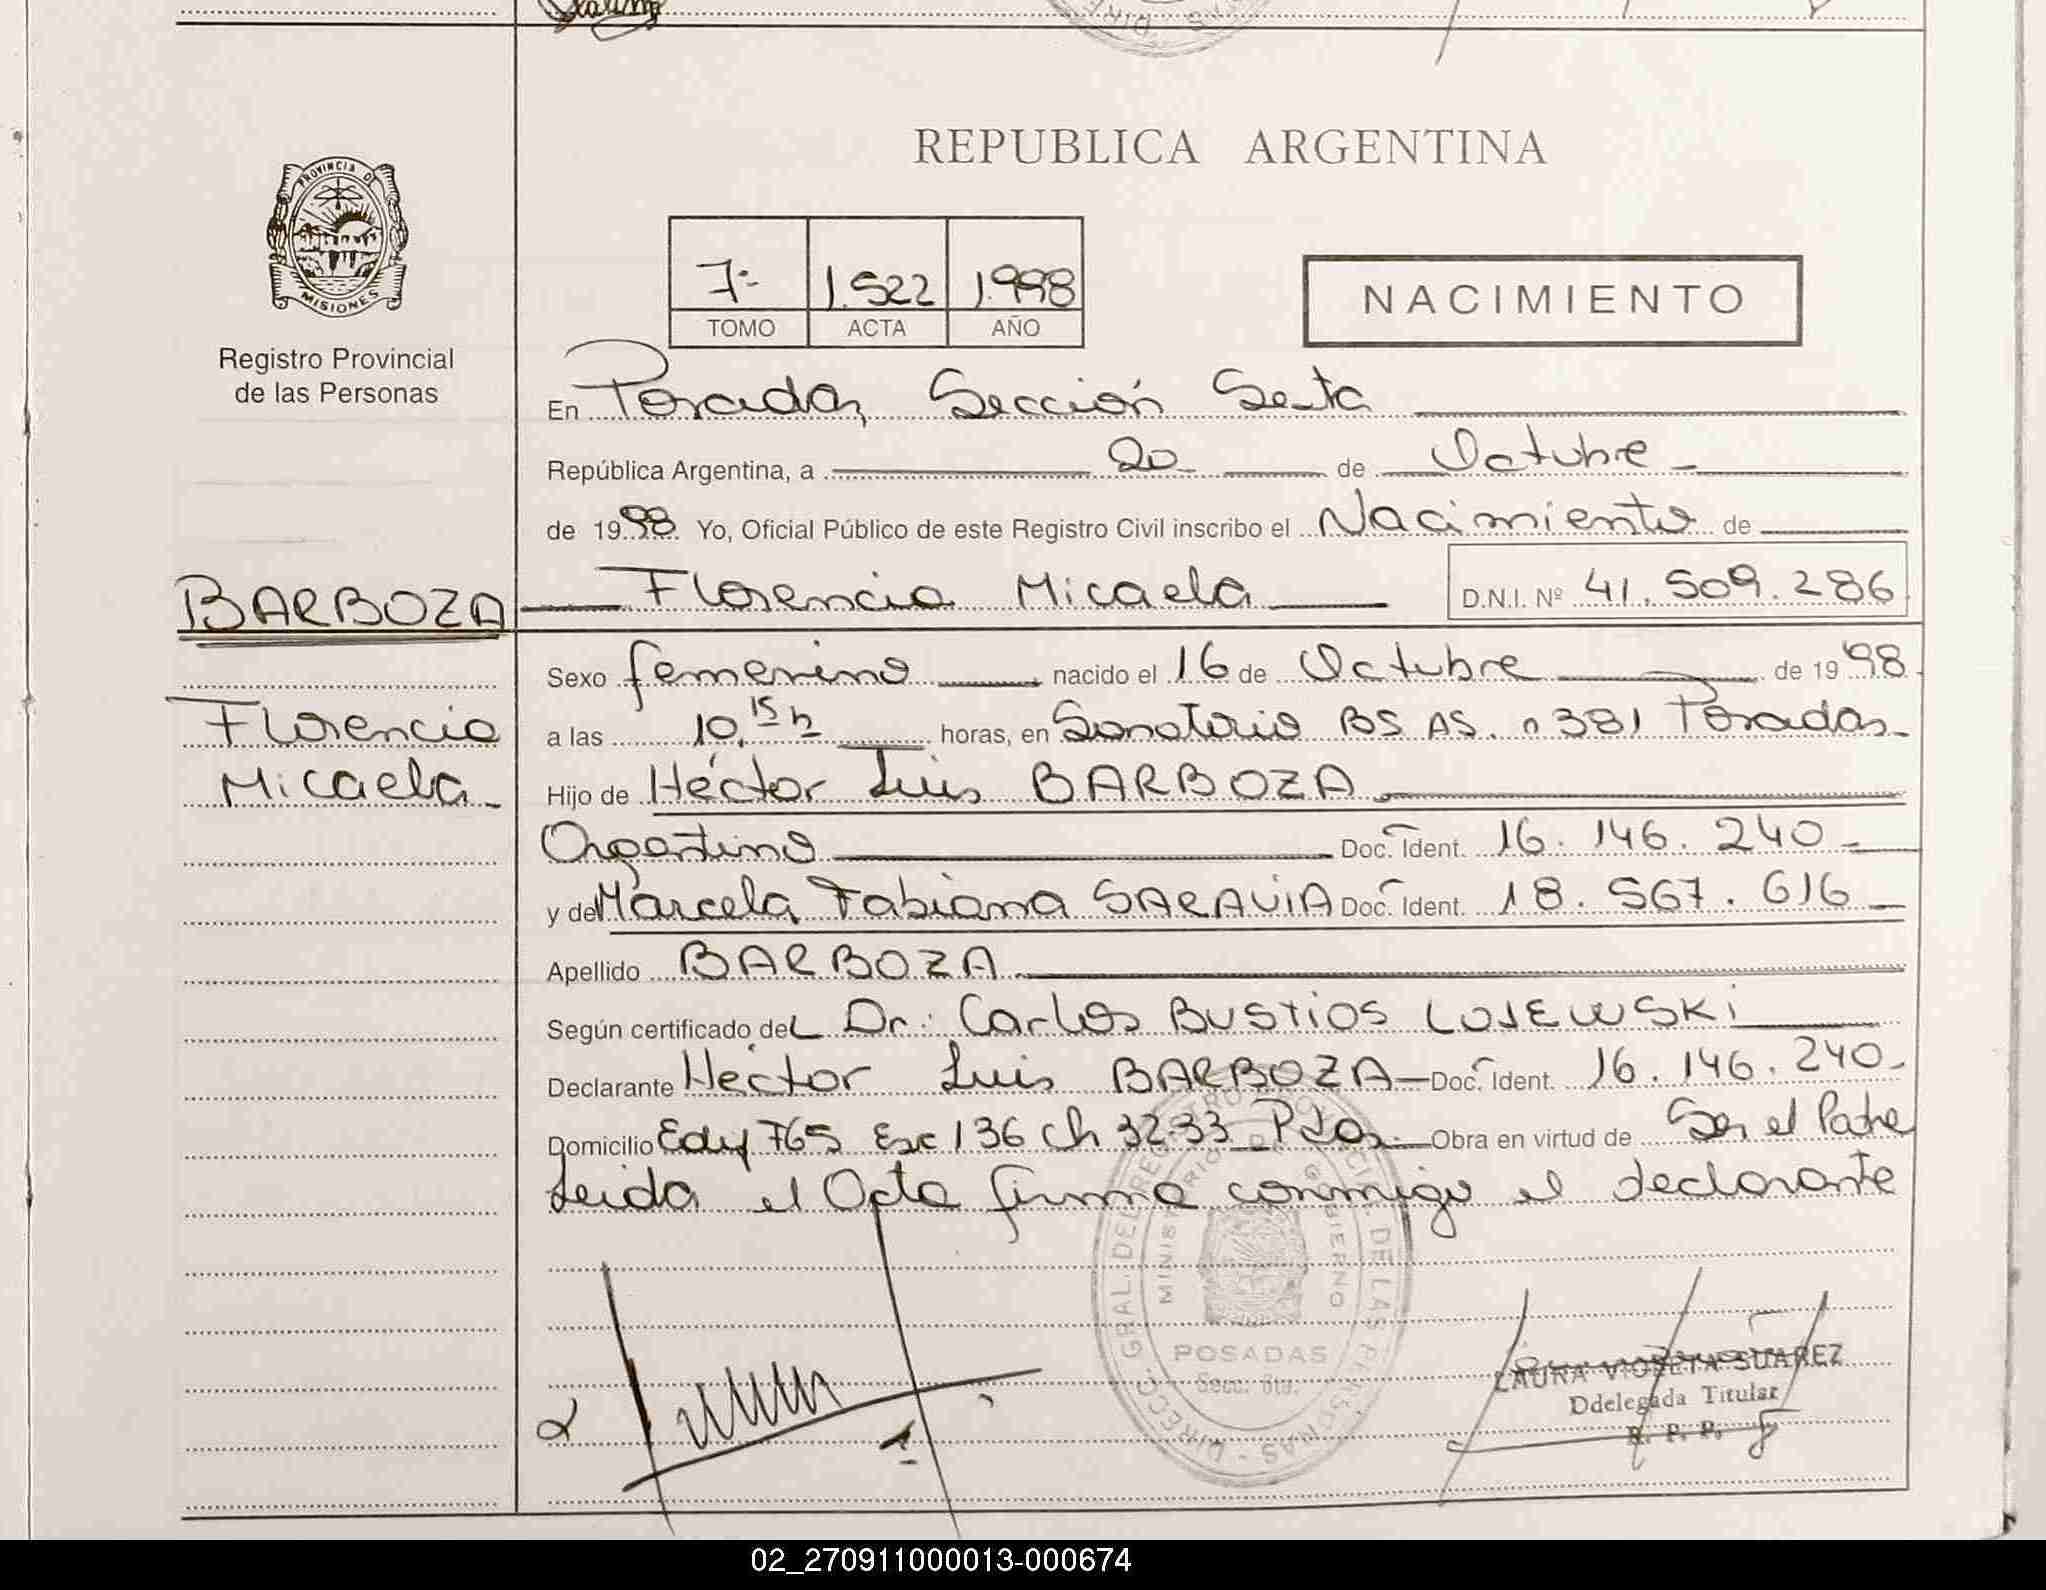 PROVINCIA DE
MISIONES
Registro Provincial
de las Personas
REPUBLICA ARGENTINA
7º 1.522 1.998
TOMO ACTA AÑO
NACIMIENTO
En Posadas, Sección Sexta
República Argentina, a 20 de Octubre
de 1998. Yo, Oficial Público de este Registro Civil inscribo el Nacimiento de
BARBOZA Florencia Micaela D.N.I. Nº 41.509.286
Sexo femenino nacido el 16 de Octubre de 1998
Florencia
Micaela
a las 10,15 h horas, en Sanatorio BS AS. n 381 Posadas
Hijo de Héctor Luis BARBOZA
Argentino Doc. Ident. 16.146.240
y de Marcela Fabiana SARAVIA Doc. Ident. 18.567.616
Apellido BARBOZA
Según certificado del Dr. Carlos BUSTIOS LOJEWSKi
Declarante Héctor Luis BARBOZA Doc. Ident. 16.146.240
Domicilio Edif 765 Esc 136 ch 32-33 Pdas. Obra en virtud de Ser el Padre
Leida el Acta firma conmigo el declarante
DIREC. GRAL. DEL REG. PROVINCIAL DE LAS PERSONAS
MINISTERIO DE GOBIERNO
POSADAS
Secc. 6ta.
LAURA VIOLETA SUAREZ
Ddelegada Titular
R. P. P.
02_270911000013-000674